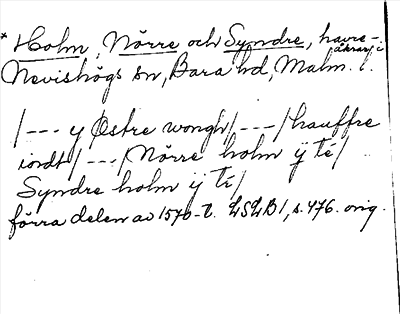 * Holm, Nörre och Syndre, havre-
åkrar i
Nevishögs sn, Bara hd, Malm. l.
/--- y Østre wongh/---/hauffre
iordt/---/Nörre holm ÿ té/
Syndre holm ÿ té/
förra delen av 1570-t. LSLB 1, s. 476. orig.